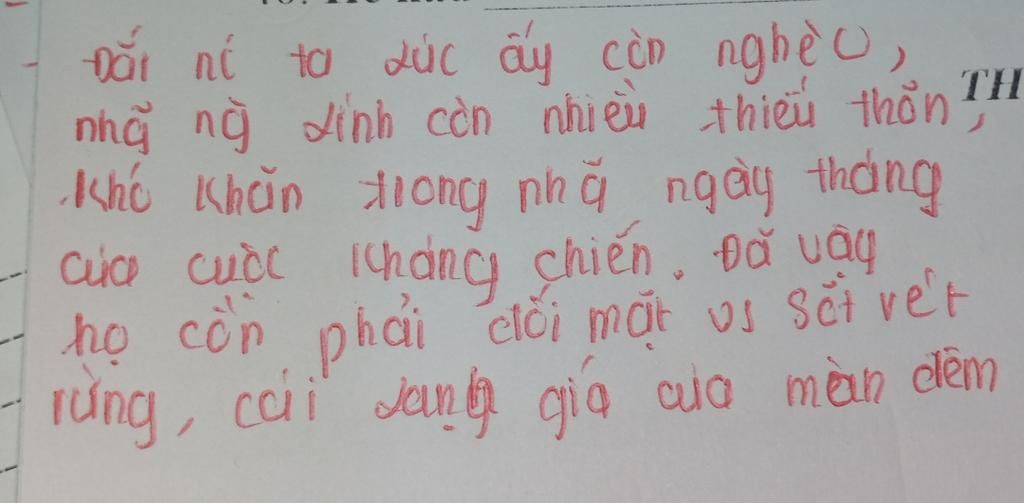 TH
Đất nc ta lúc ấy còn nghèo,
nhữ ng lính còn nhiều thiếu thốn,
khó khăn trong nhữ ngày tháng
của cuộc kháng chiến. Đã vậy
họ còn phải đối mặt vs sốt rét
rừng, cái lạnh giá của màn đêm